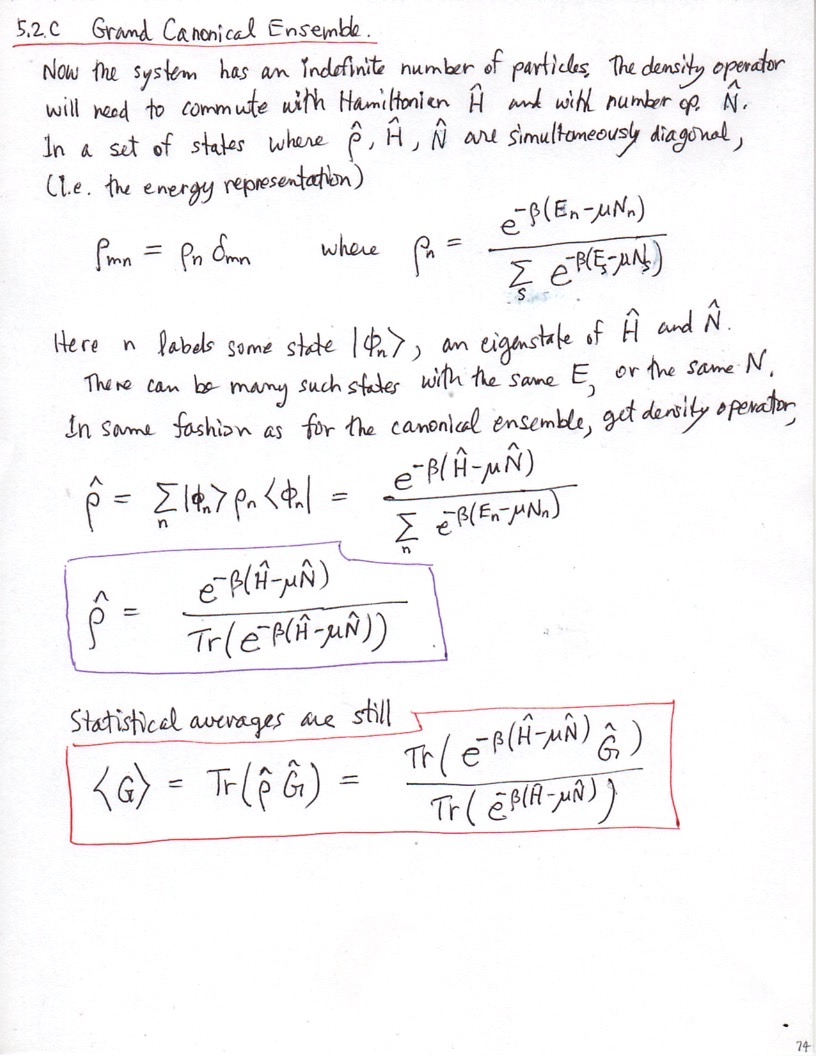 5.2.C Grand Canonical Ensemble.
Now the system has an indefinite number of particles. The density operator
will need to commute with Hamiltonian Ĥ and with number op. N̂.
In a set of states where ρ̂, Ĥ, N̂ are simultaneously diagonal,
(I.e. the energy representation)
ρ_mn = ρ_n δ_mn where ρ_n = e^{-β(E_n-μN_n)} / Σ_s e^{-β(E_s-μN_s)}
Here n labels some state |ϕ_n>, an eigenstate of Ĥ and N̂.
There can be many such states with the same E, or the same N.
In same fashion as for the canonical ensemble, get density operator,
ρ̂ = Σ_n |ϕ_n> ρ_n <ϕ_n| = e^{-β(Ĥ-μN̂)} / Σ_n e^{-β(E_n-μN_n)}
ρ̂ = e^{-β(Ĥ-μN̂)} / Tr(e^{-β(Ĥ-μN̂)})
Statistical averages are still
<G> = Tr(ρ̂ Ĝ) = Tr(e^{-β(Ĥ-μN̂)} Ĝ) / Tr(e^{-β(Ĥ-μN̂)})
74